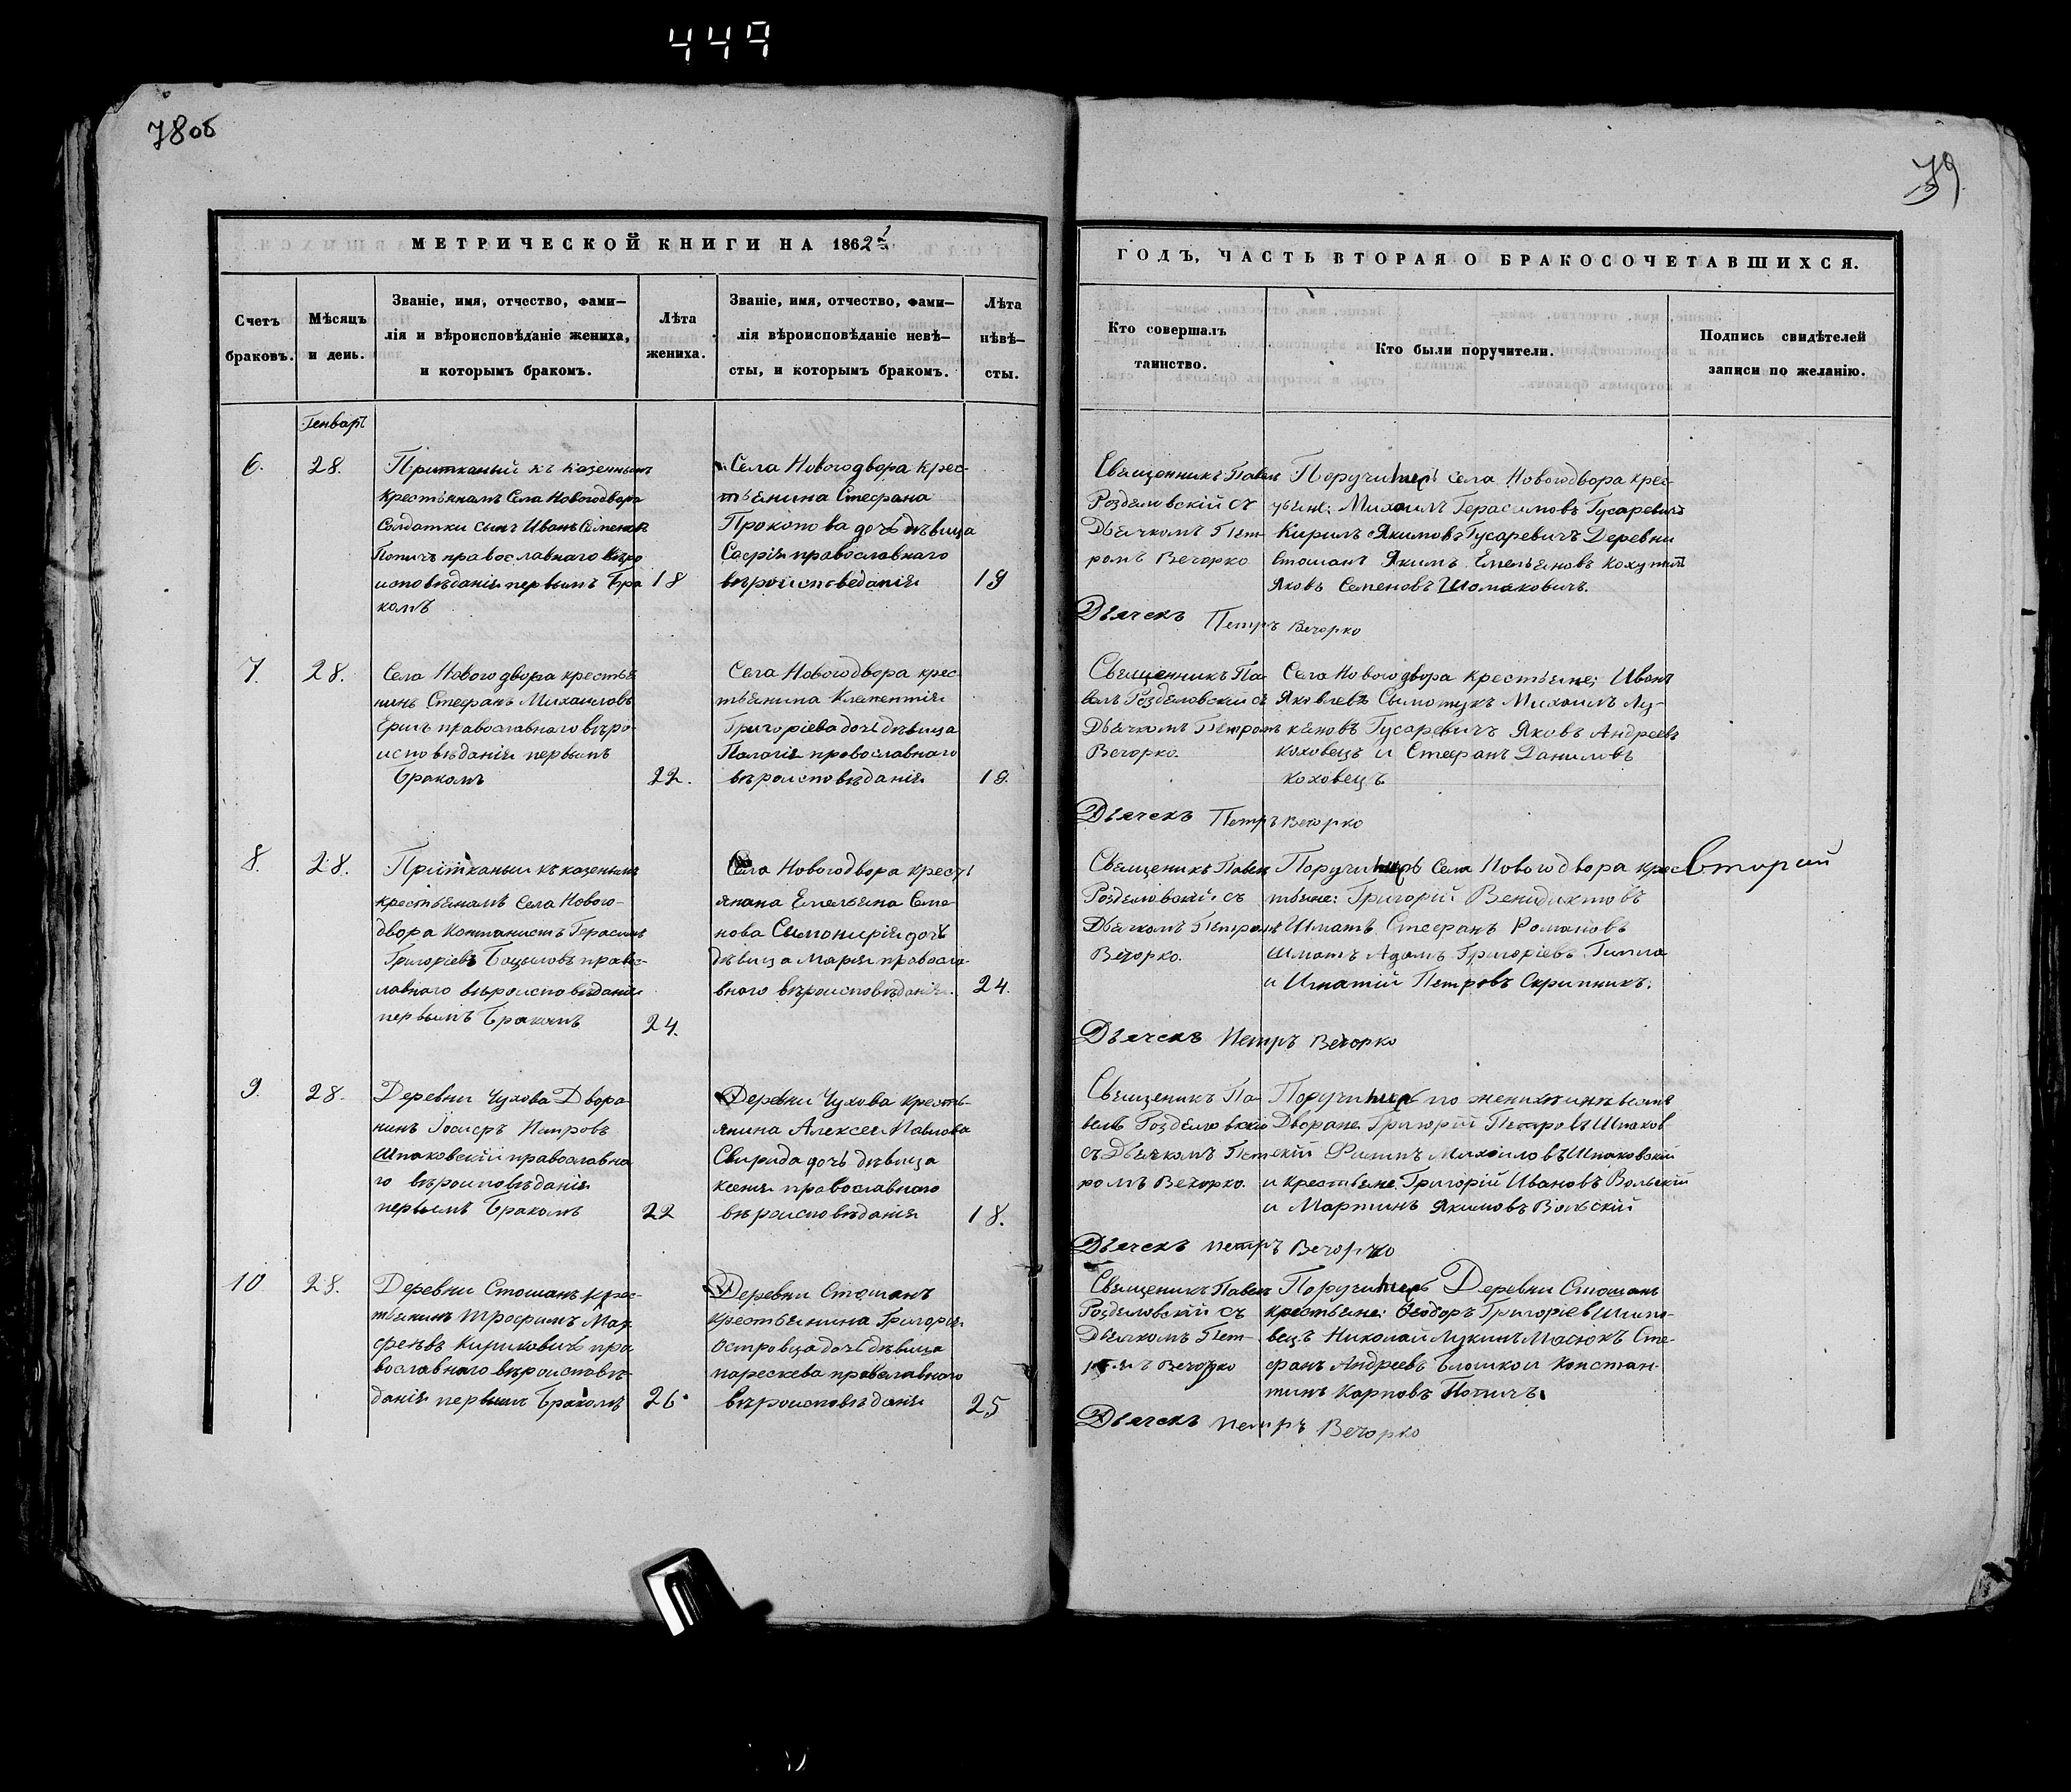 449
78об
79
МЕТРИЧЕСКОЙ КНИГИ НА 1862й
ГОДЪ, ЧАСТЬ ВТОРАЯ О БРАКОСОЧЕТАВШИХСЯ.
Счетъ
браковъ.
Мѣсяцъ
и день.
Званіе, имя, отчество, фами–
лія и вѣроисповѣданіе жениха,
и которымъ бракомъ.
Лѣта
жениха.
Званіе, имя, отчество, фами–
лія вѣроисповѣданіе невѣ–
сты, и которымъ бракомъ.
Лѣта
нѣвѣ–
сты.
Кто совершалъ
таинство.
Кто были поручители.
Подпись свидѣтелей
записи по желанію.
Генварь
6.
28.
Притканый къ казеннымъ
крестьянамъ Села Новогодвора
Солдатки сынъ Иванъ Семеновъ
Попичъ православнаго вѣро
исповѣданія первымъ Бра
комъ
18
Села Новогодвора крес-
тьянина Стефана
Прокопова дочь дѣвица
Софія православнаго
вѣроисповеданія
19
Священникъ Павелъ
Роздяловскій съ
Дьячкомъ Пет-
ромъ Вечорко
села Новогодвора крес-
Михаилъ Герасимовъ Гусаревичъ
Кирилъ Якимовъ Гусаревичъ Деревни
Стошанъ Якимъ Емельяновъ
Яковъ Семеновъ Шомаковичъ.
Дьячекъ Петръ Вечорко
7.
28.
Села Новогодвора крестья
нинъ Стефанъ Михаиловъ
Ёршъ православнаго вѣро
исповѣданія первымъ
Бракомъ
22.
Села Новогодвора крес
тьянина Клементія
Григоріева дочь дѣвица
Палагія провославнаго
вѣроисповѣданія
19.
Священникъ Па-
велъ Роздяловскій съ
Дьячкомъ Петромъ
Вечорко.
Села Новогодвора крестьяне: Иванъ
Яковлевъ Михаилъ Лу-
кановъ Гусаревичъ Яковъ Андреевъ
коховецъ и Стефанъ Даниловъ
коховецъ
Дьячекъ Петръ Вечорко
8.
28.
Притканыи къ казенымъ
крестьянамъ Села Новаго-
двора Герасимъ
Григоріевъ Боцыловъ правос-
лавнаго вѣроисповѣданія
первымъ Бракомъ
24.
Села Новогодвора крестѣ
янина Емельяна Семе
нова дочь
дѣвица Марія провосла
внаго вѣроисповѣданія.
24.
Священикъ Павелъ
Роздяловскій съ
Дьячкомъ Петромъ
Вечорко.
Села Новогодвора крес
тьяне: Григорій Венидиктовъ
Шматъ Стефанъ Романовъ
Шматъ Адамъ Григоріевъ
и Игнатій Петровъ Скрипникъ.
вторый
Дьячекъ Петръ Вечорко
9.
28.
Деревни Чухова Дворя
нинъ Іосифъ Петровъ
Шпаковскій православна
го вѣроисповѣданія
первымъ Бракомъ
22
Деревни Чухова кресть
янина Алексея Павлова
Свирида дочь дѣвица
Ксенія православнаго
вѣроисповѣданія
18.
Священикъ Па-
велъ Роздяловскій
съ Дьячкомъ Пет-
ромъ Вечорко.
по женихѣ и невѣстѣ
Дворане Григорій Петровъ Шпаков
скій Филипъ Михаиловъ Шпаковскій
и крестьяне Григорій Ивановъ Вольскій
и Мартинъ Якимовъ Вольскій
Дьячекъ Петръ Вечорко
10
28.
Деревни Стошанъ крес-
тьянинъ Трофимъ Мар
феевъ Кириковичъ пра
вославнаго вѣроисповѣ-
данія первымъ Бракомъ
26.
Деревни Стошанъ
крестьянина Григорія
Островца дочь дѣвица
парескева православнаго
вѣроисповѣданія
25
Священикъ Павелъ
Роздяловскій съ
Дьячкомъ Пет-
ромъ Вечорко
Деревни Стошанъ
крестьяне: Феодоръ Григоріевъ
вецъ Николай Лукинъ Масюкъ Сте-
фанъ Андреевъ Блошкои Констан-
тинъ Карповъ Попичъ.
Дьячекъ петръ Вечорко